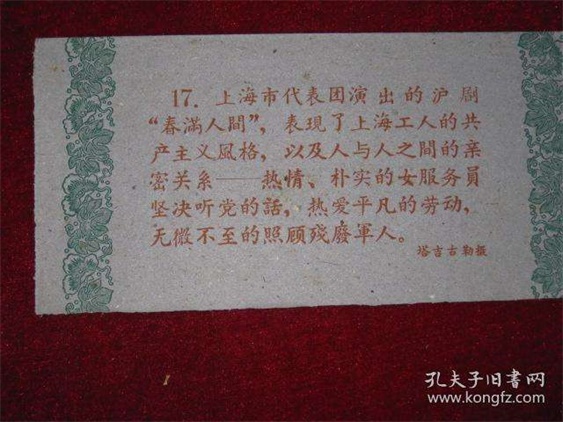 17. 上海市代表团演出的沪剧
“春滿人間”，表现了上海工人的共
产主义風格，以及人与人之間的亲
密关系——热情、朴实的女服务員
坚决听党的話，热爱平凡的劳动，
无微不至的照顾殘廢軍人。
塔吉古勒摄
孔夫子旧书网
www.kongfz.com